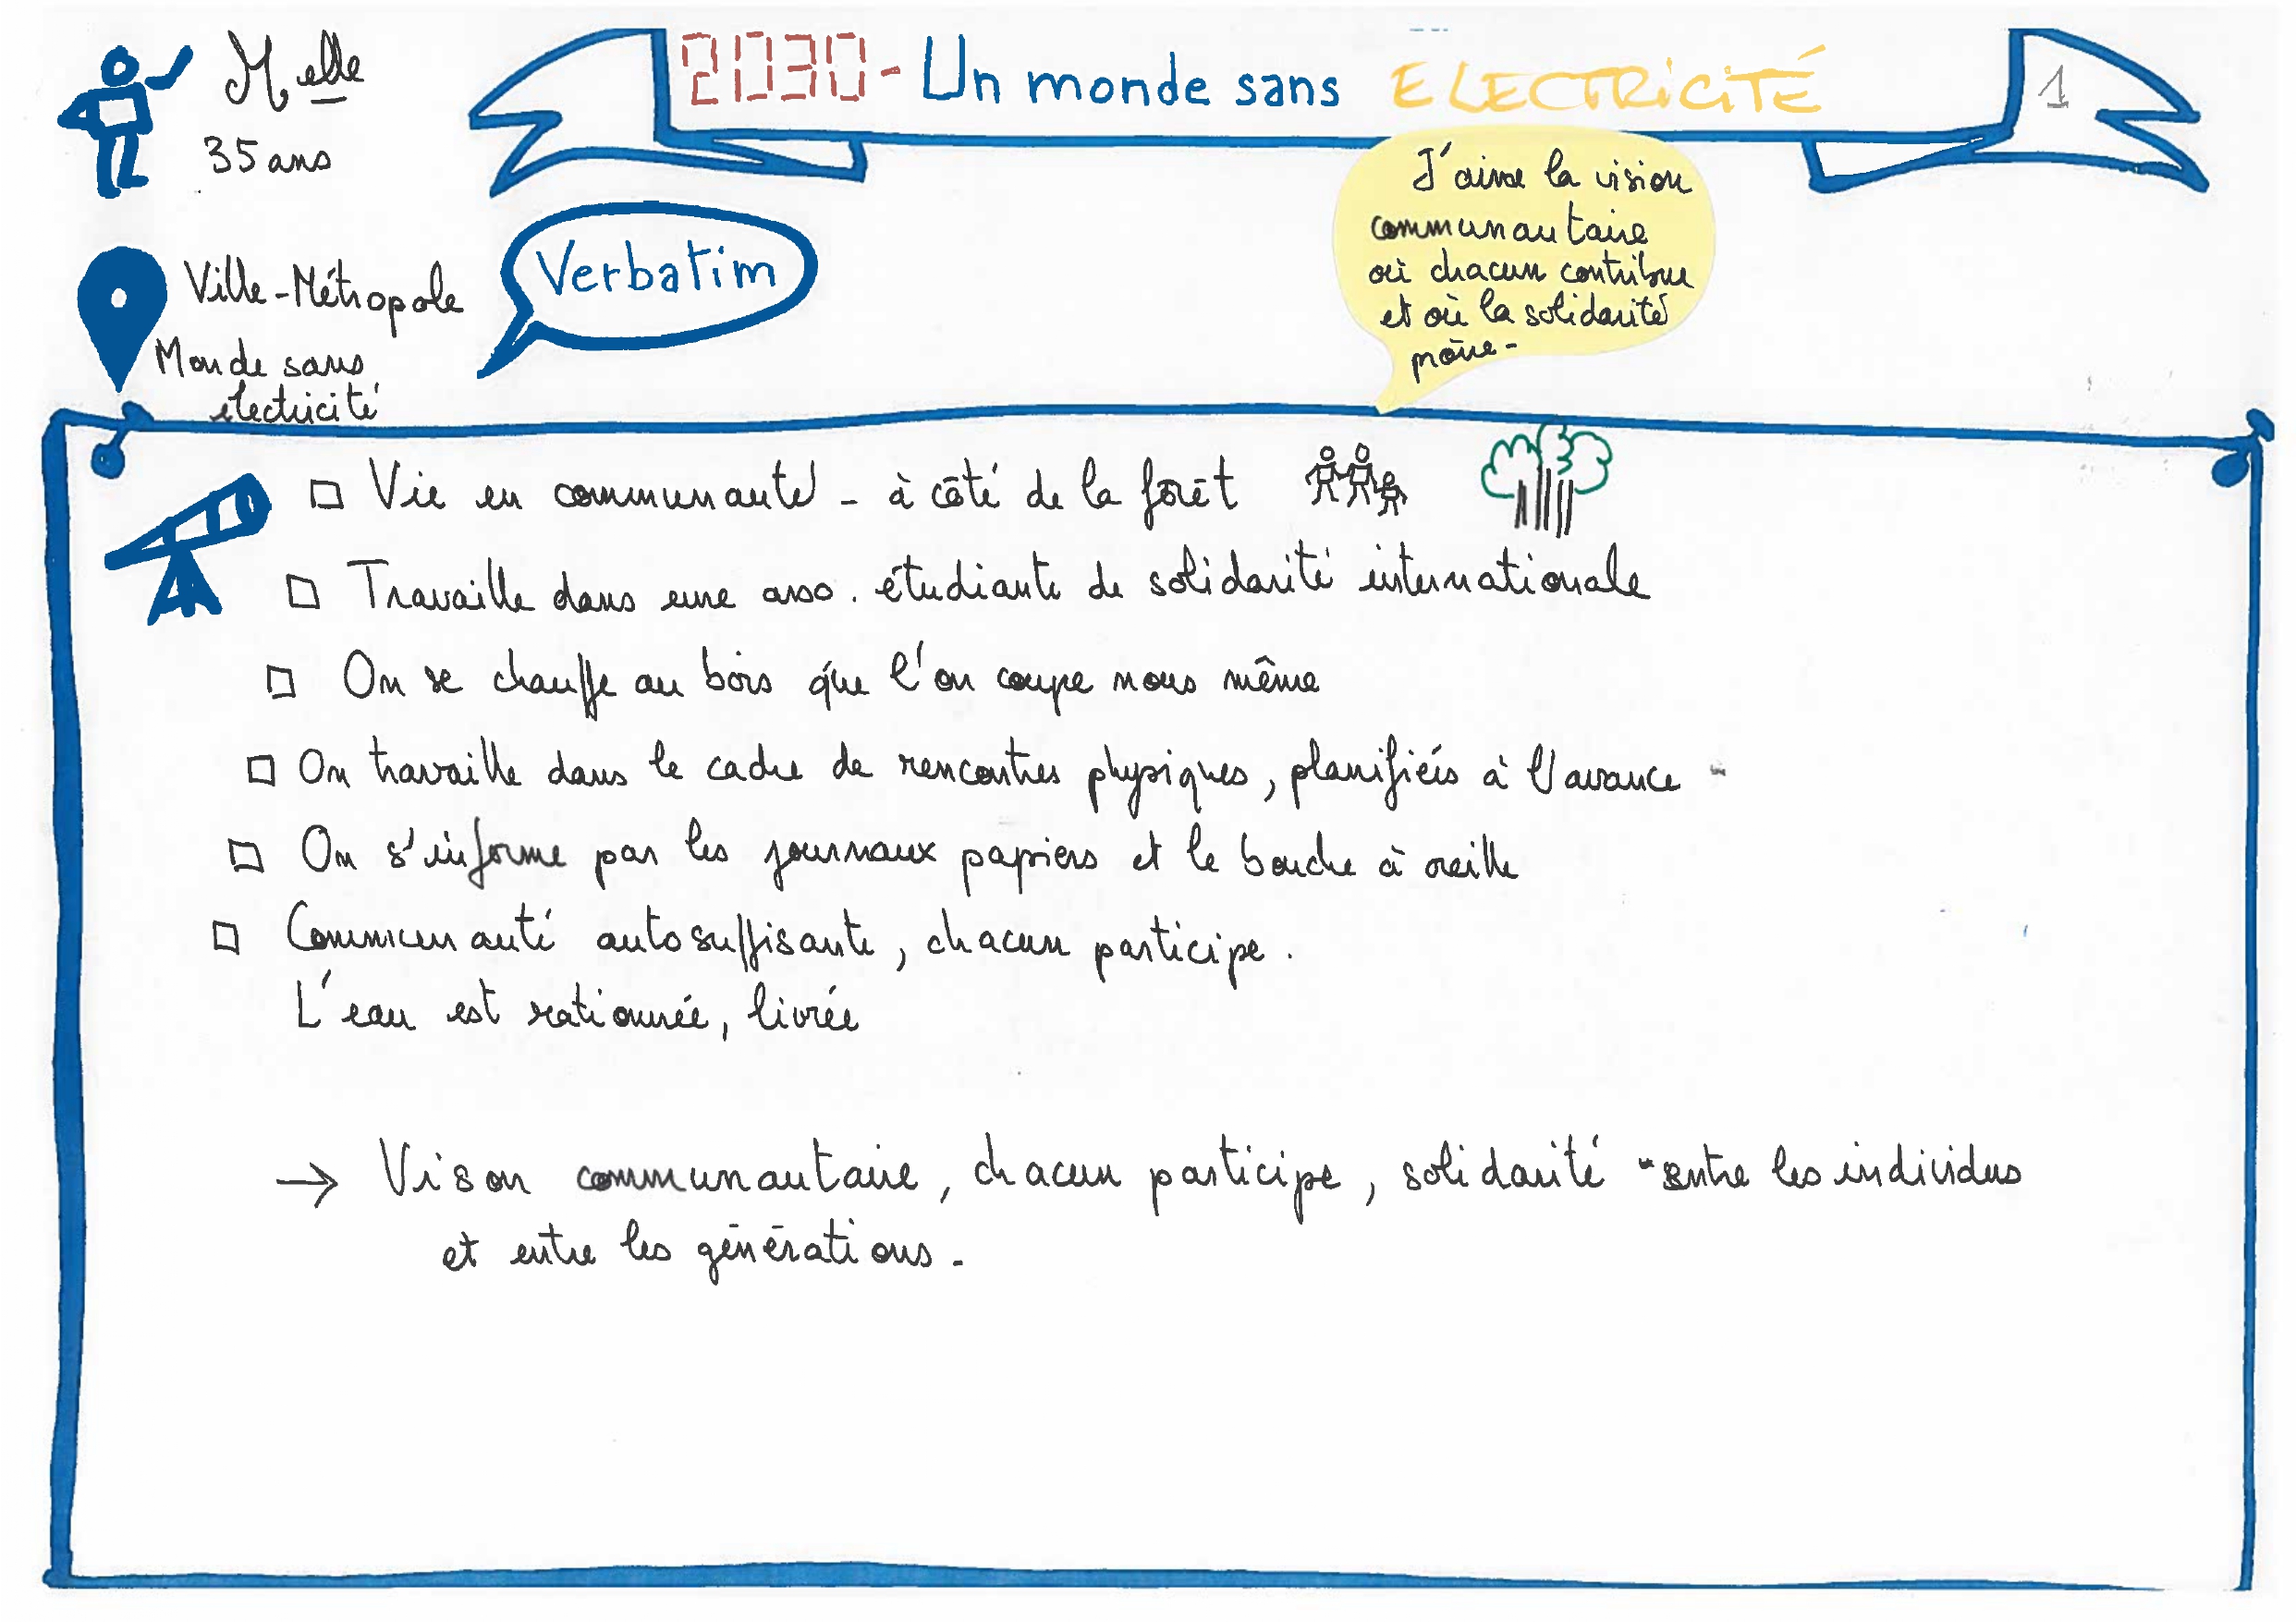 Melle
35 ans
2030 - Un monde sans ELECTRICITÉ
1
Ville-Métropole
Monde sans
électricité
Verbatim
J'aime la vision
communautaire
où chacun contribue
et où la solidarité
prône -
□ Vie en communauté - à côté de la forêt
□ Travaille dans une asso. étudiante de solidarité internationale
□ On se chauffe au bois que l'on coupe nous même
□ On travaille dans le cadre de rencontres physiques, planifiés à l'avance -
□ On s'informe par les journaux papiers et le bouche à oreille
□ Communauté autosuffisante, chacun participe.
L'eau est rationnée, livrée
→ Vison communautaire, chacun participe, solidarité entre les individus
et entre les générations -